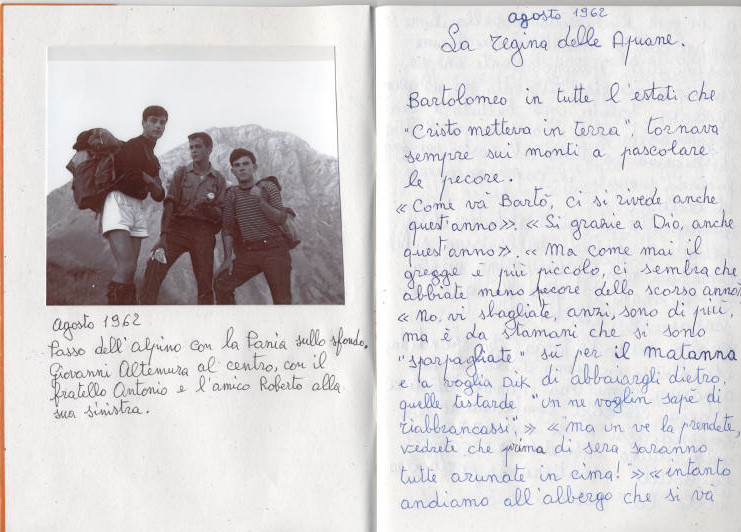 agosto 1962
Passo dell'alpino con la Pania sullo sfondo.
Giovanni Altemura al centro, con il
fratello Antonio e l'amico Roberto alla
sua sinistra.
agosto 1962
La regina delle Apuane.
Bartolomeo in tutte l'estati che
"Cristo metteva in terra", tornava
sempre sui monti a pascolare
le pecore.
« Come và Bartò, ci si rivede anche
quest'anno». « Si grazie a Dio, anche
quest'anno». « Ma come mai il
gregge è più piccolo, ci sembra che
abbiate meno pecore dello scorso anno».
« No, vi sbagliate, anzi, sono di più,
ma è da stamani che si sono
"sparpagliate" sù per il matanna
e a voglia Dik di abbaiargli dietro,
quelle testarde "un ne voglin sapè di
riabbrancassi", » « "ma un ve la prendete,
vedrete che prima di sera saranno
tutte arunate in cima!" » « intanto
andiamo all'albergo che si và